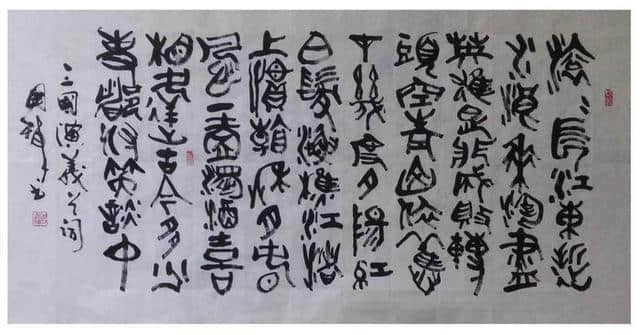 滾〻長江東逝
水浪花淘盡
英雄是非成敗轉
頭空青山依舊
在幾度夕陽紅
白髮漁樵江渚
上慣看秋月春
風一壺濁酒喜
相逢古今多少
事都付笑談中
三國演義詞